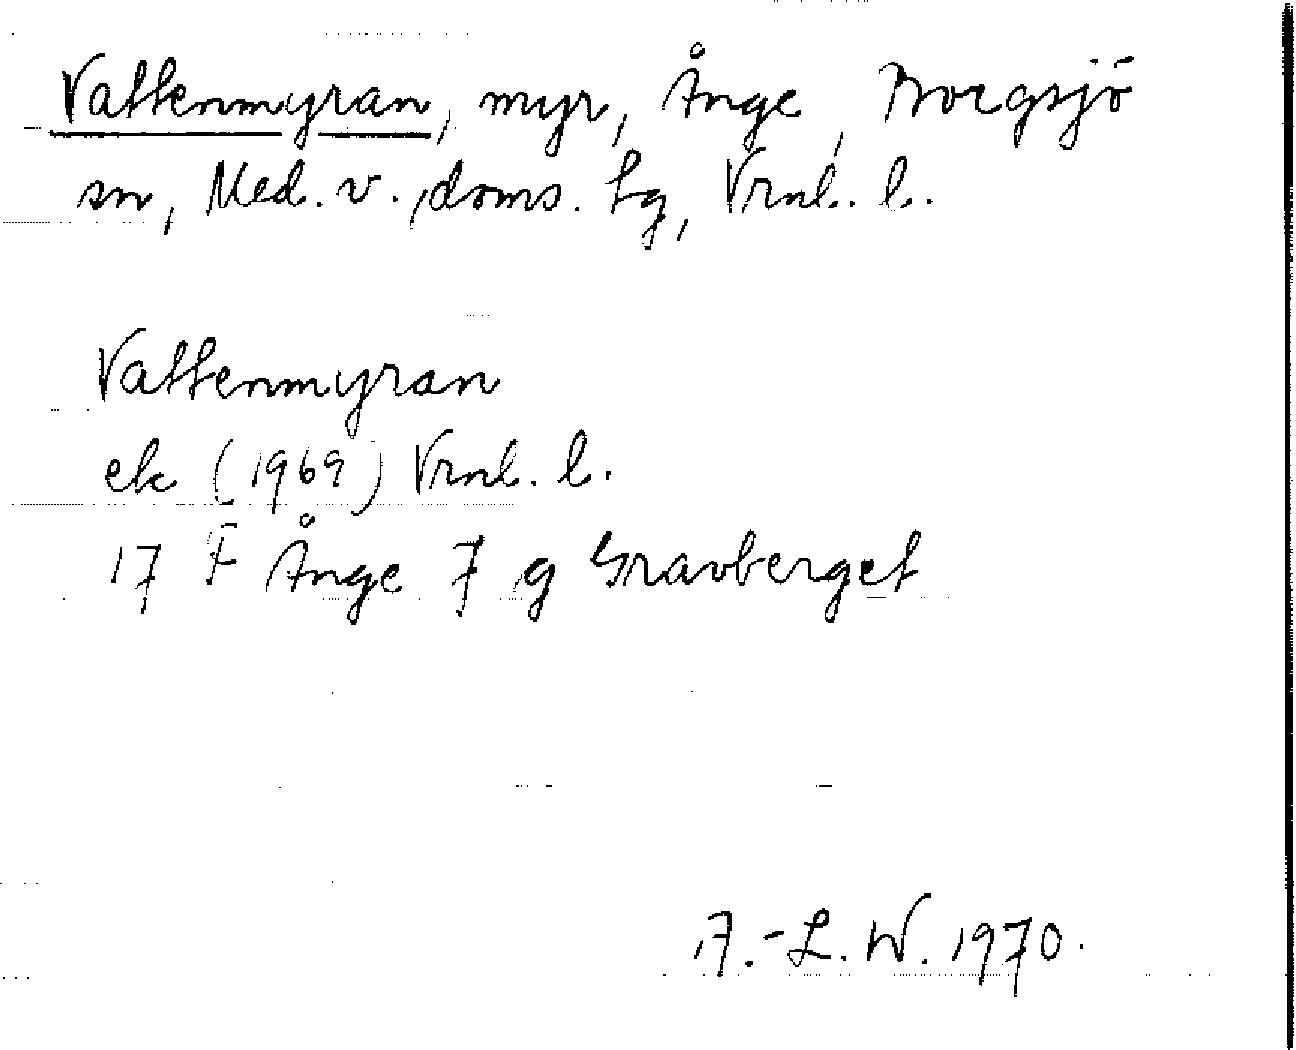 Vattenmyran, myr, Ånge, Borgsjö
sn, Med. v. doms. lg, Vrnl. l.
Vattenmyran
ek (1969) Vrnl. l.
17 F Ånge 7 g Gravberget
A.-L. W. 1970.